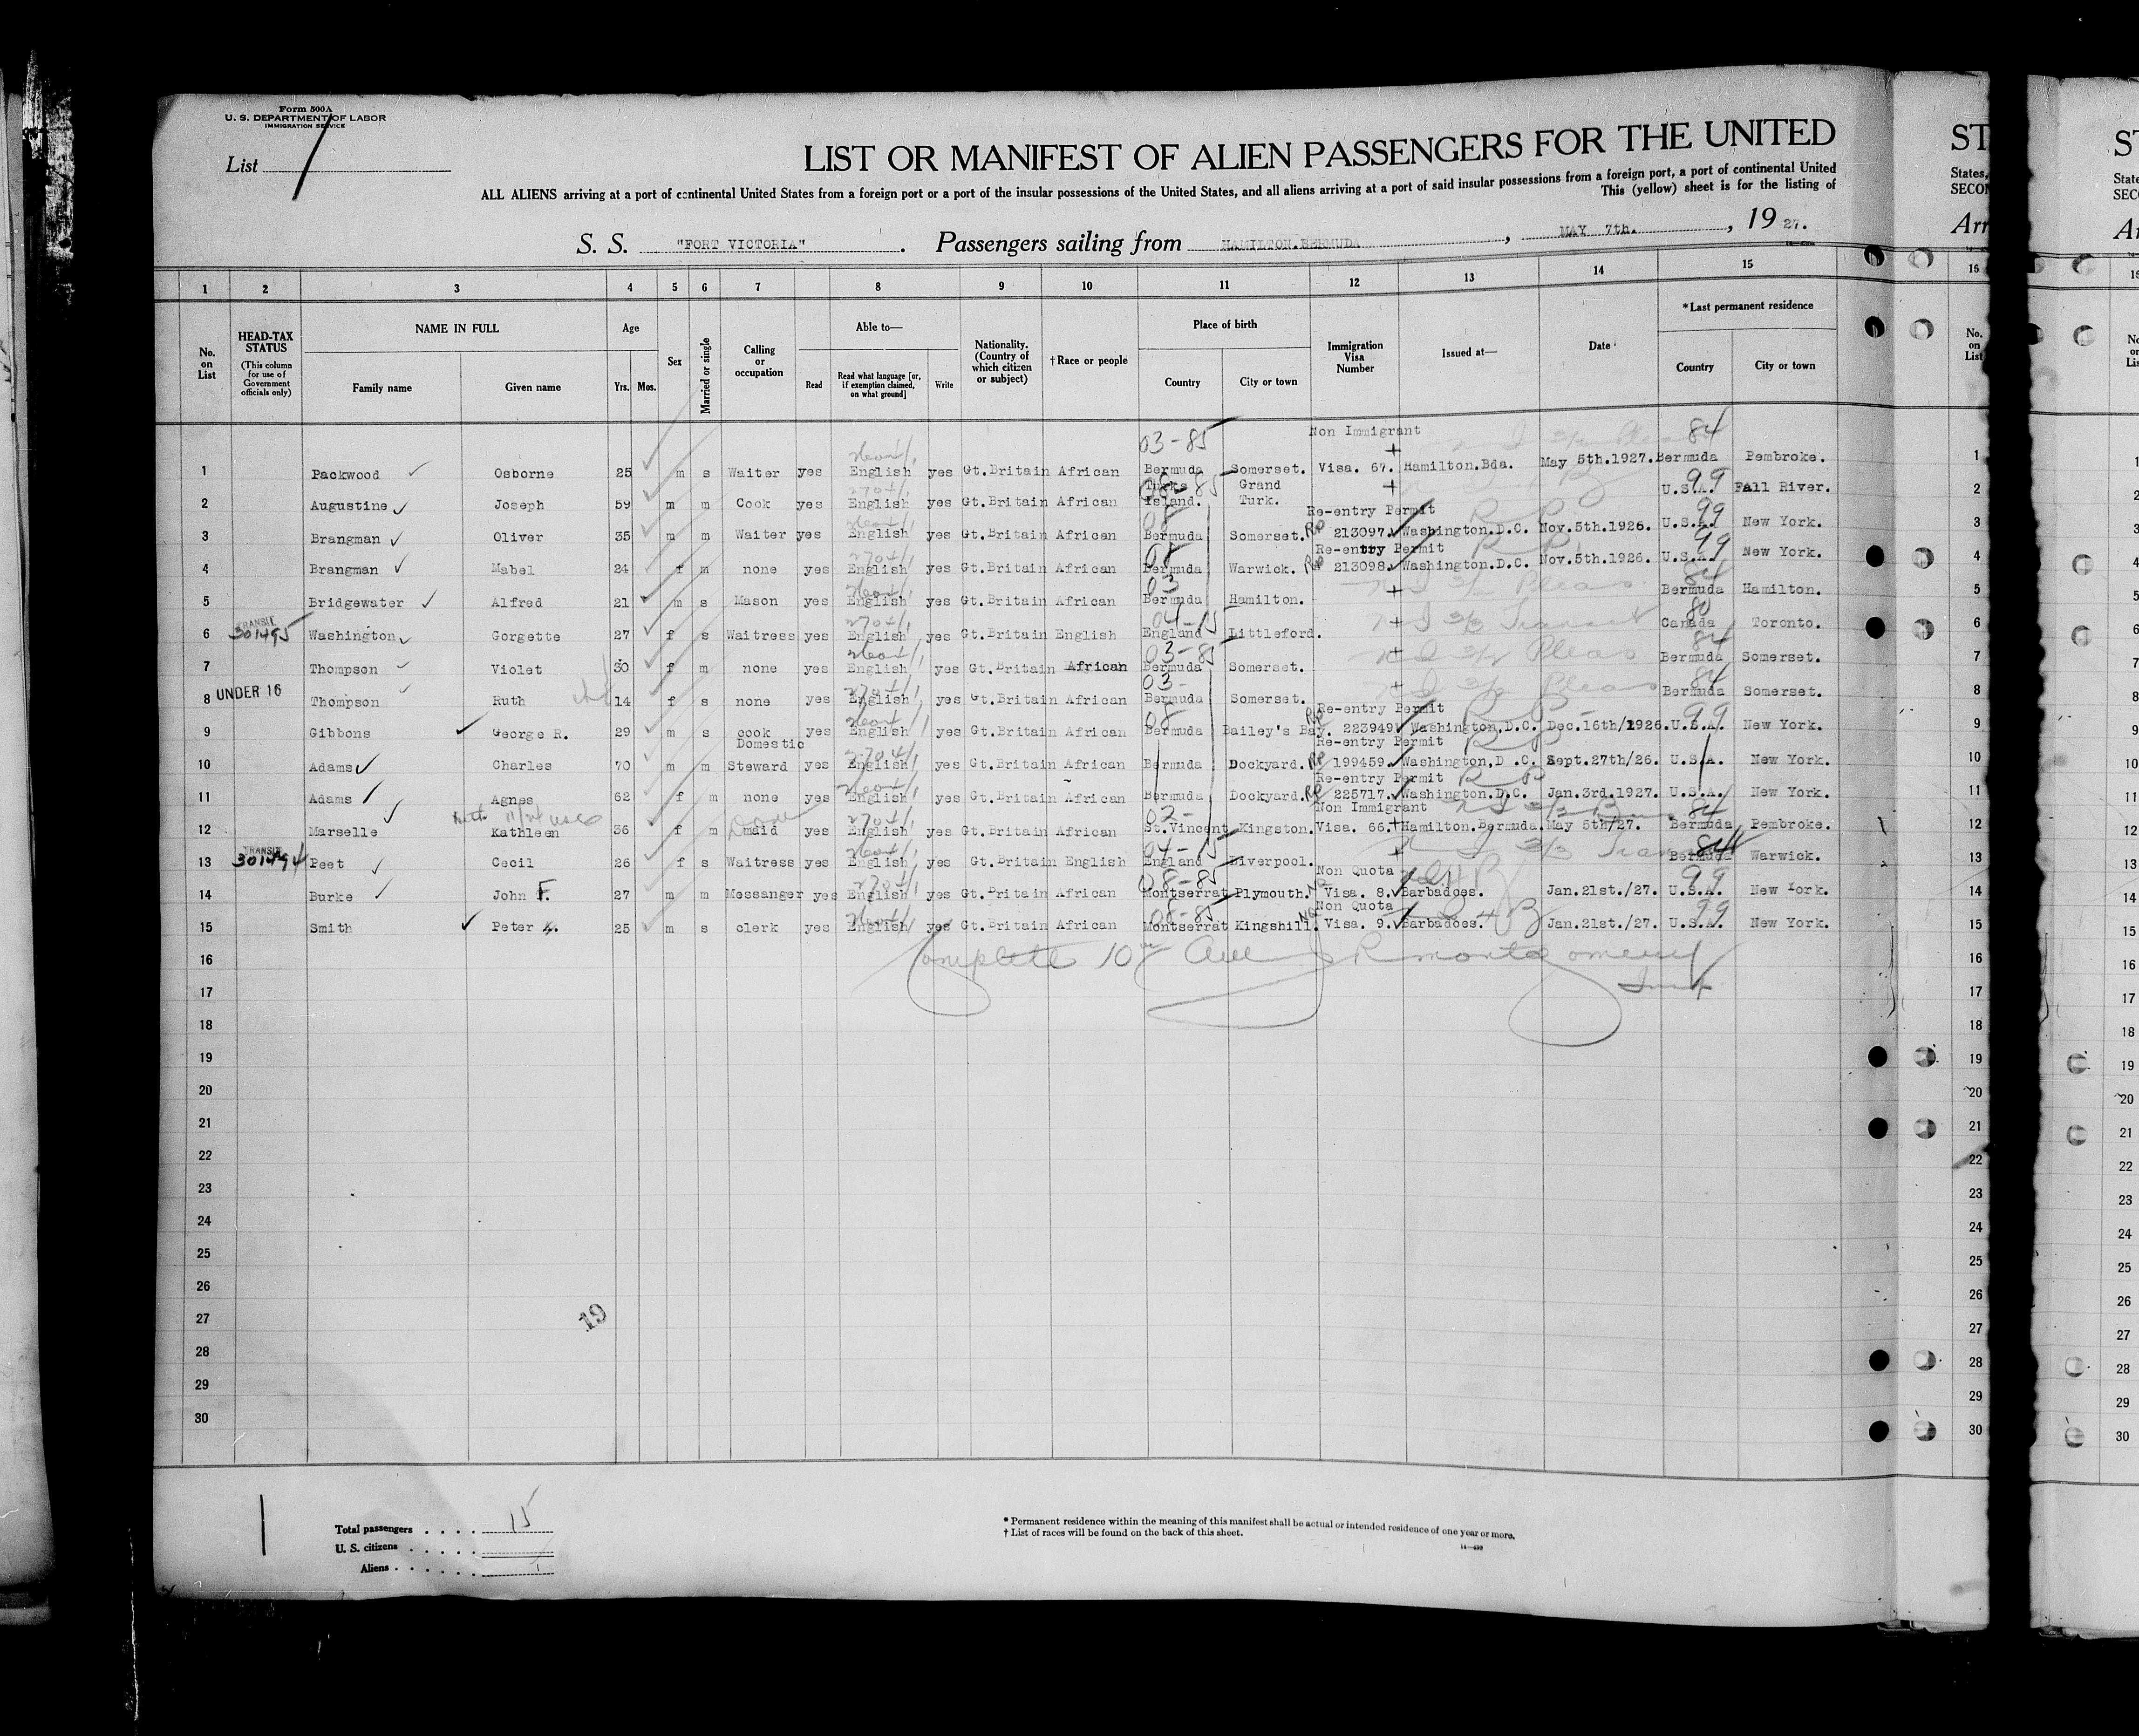 Form 500A
U. S. DEPARTMENT OF LABOR
IMMIGRATION SERVICE
List 1
LIST OR MANIFEST OF ALIEN PASSENGERS FOR THE UNITED
ALL ALIENS arriving at a port of continental United States from a foreign port or a port of the insular possessions of the United States, and all aliens arriving at a port of said insular possessions from a foreign port, a port of continental United
This (yellow) sheet is for the listing of
S. S. "FORT VICTORIA" . Passengers sailing from HAMILTON.BERMUDA , MAY 7th. , 19 27.
1 2 3 4 5 6 7 8 9 10 11 12 13 14 15
No. on List
HEAD-TAX STATUS
(This column for use of Government officials only)
NAME IN FULL
Family name Given name
Age
Yrs. Mos.
Sex
Married or single
Calling or occupation
Able to—
Read
Read what language [or, if exemption claimed, on what ground]
Write
Nationality. (Country of which citizen or subject)
†Race or people
Place of birth
Country City or town
Immigration Visa Number
Issued at—
Date
*Last permanent residence
Country City or town
03-85 Non Immigrant 84
1 Packwood Osborne 25 m s Waiter yes English yes Gt.Britain African Bermuda Somerset. Visa. 67. Hamilton.Bda. May 5th.1927. Bermuda Pembroke.
Turks Grand 99
2 Augustine Joseph 59 m m Cook yes English yes Gt.Britain African Island. Turk. U.S.A. Fall River.
Re-entry Permit 99
3 Brangman Oliver 35 m m Waiter yes English yes Gt.Britain African Bermuda Somerset. RP 213097. Washington.D.C. Nov.5th.1926. U.S.A. New York.
Re-entry Permit 99
4 Brangman Mabel 24 f m none yes English yes Gt.Britain African Bermuda Warwick. 213098. Washington.D.C. Nov.5th.1926. U.S.A. New York.
03 84
5 Bridgewater Alfred 21 m s Mason yes English yes Gt.Britain African Bermuda Hamilton. Bermuda Hamilton.
TRANSIT 04-15 Transit 80
6 301495 Washington Gorgette 27 f s Waitress yes English yes Gt.Britain English England Littleford. Canada Toronto.
03-85 Pleas 84
7 Thompson Violet 30 f m none yes English yes Gt.Britain African Bermuda Somerset. Bermuda Somerset.
03- Pleas 84
8 UNDER 16 Thompson Ruth 14 f s none yes English yes Gt.Britain African Bermuda Somerset. Bermuda Somerset.
08 Re-entry Permit 99
9 Gibbons George R. 29 m s cook yes English yes Gt.Britain African Bermuda Bailey's Bay. RP 223949 Washington.D.C. Dec.16th/1926. U.S.A. New York.
Domestic Re-entry Permit
10 Adams Charles 70 m m Steward yes English yes Gt.Britain African Bermuda Dockyard. RP 199459. Washington.D .C. Sept.27th/26. U.S.A. New York.
Re-entry Permit
11 Adams Agnes 62 f m none yes English yes Gt.Britain African Bermuda Dockyard. RP 225717. Washington.D.C. Jan.3rd.1927. U.S.A. New York.
Dom Non Immigrant 84
12 Marselle Kathleen 36 f m maid yes English yes Gt.Britain African St.Vincent Kingston. Visa. 66. Hamilton.Bermuda. May 5th/27. Bermuda Pembroke.
TRANSIT 04-15 84
13 301494 Peet Cecil 26 f s Waitress yes English yes Gt.Britain English England Liverpool. Bermuda Warwick.
08-85 Non Quota 99
14 Burke John F. 27 m m Messanger yes English yes Gt.Britain African Montserrat Plymouth. Visa. 8. Barbadoes. Jan.21st./27. U.S.A. New York.
08-85 Non Quota 99
15 Smith Peter 25 m s clerk yes English yes Gt.Britain African Montserrat Kingshill. Visa. 9. Barbadoes. Jan.21st./27. U.S.A. New York.
16 Complete
17
18
19
20
21
22
23
24
25
26
27
28
29
30
19
Total passengers . . . . 15
U. S. citizens . . . . .
Aliens . . . . . .
* Permanent residence within the meaning of this manifest shall be actual or intended residence of one year or more.
† List of races will be found on the back of this sheet.
ST
States,
SECON
Arr
16
No. on List
1
2
3
4
5
6
7
8
9
10
11
12
13
14
15
16
17
18
19
20
21
22
23
24
25
26
27
28
29
30